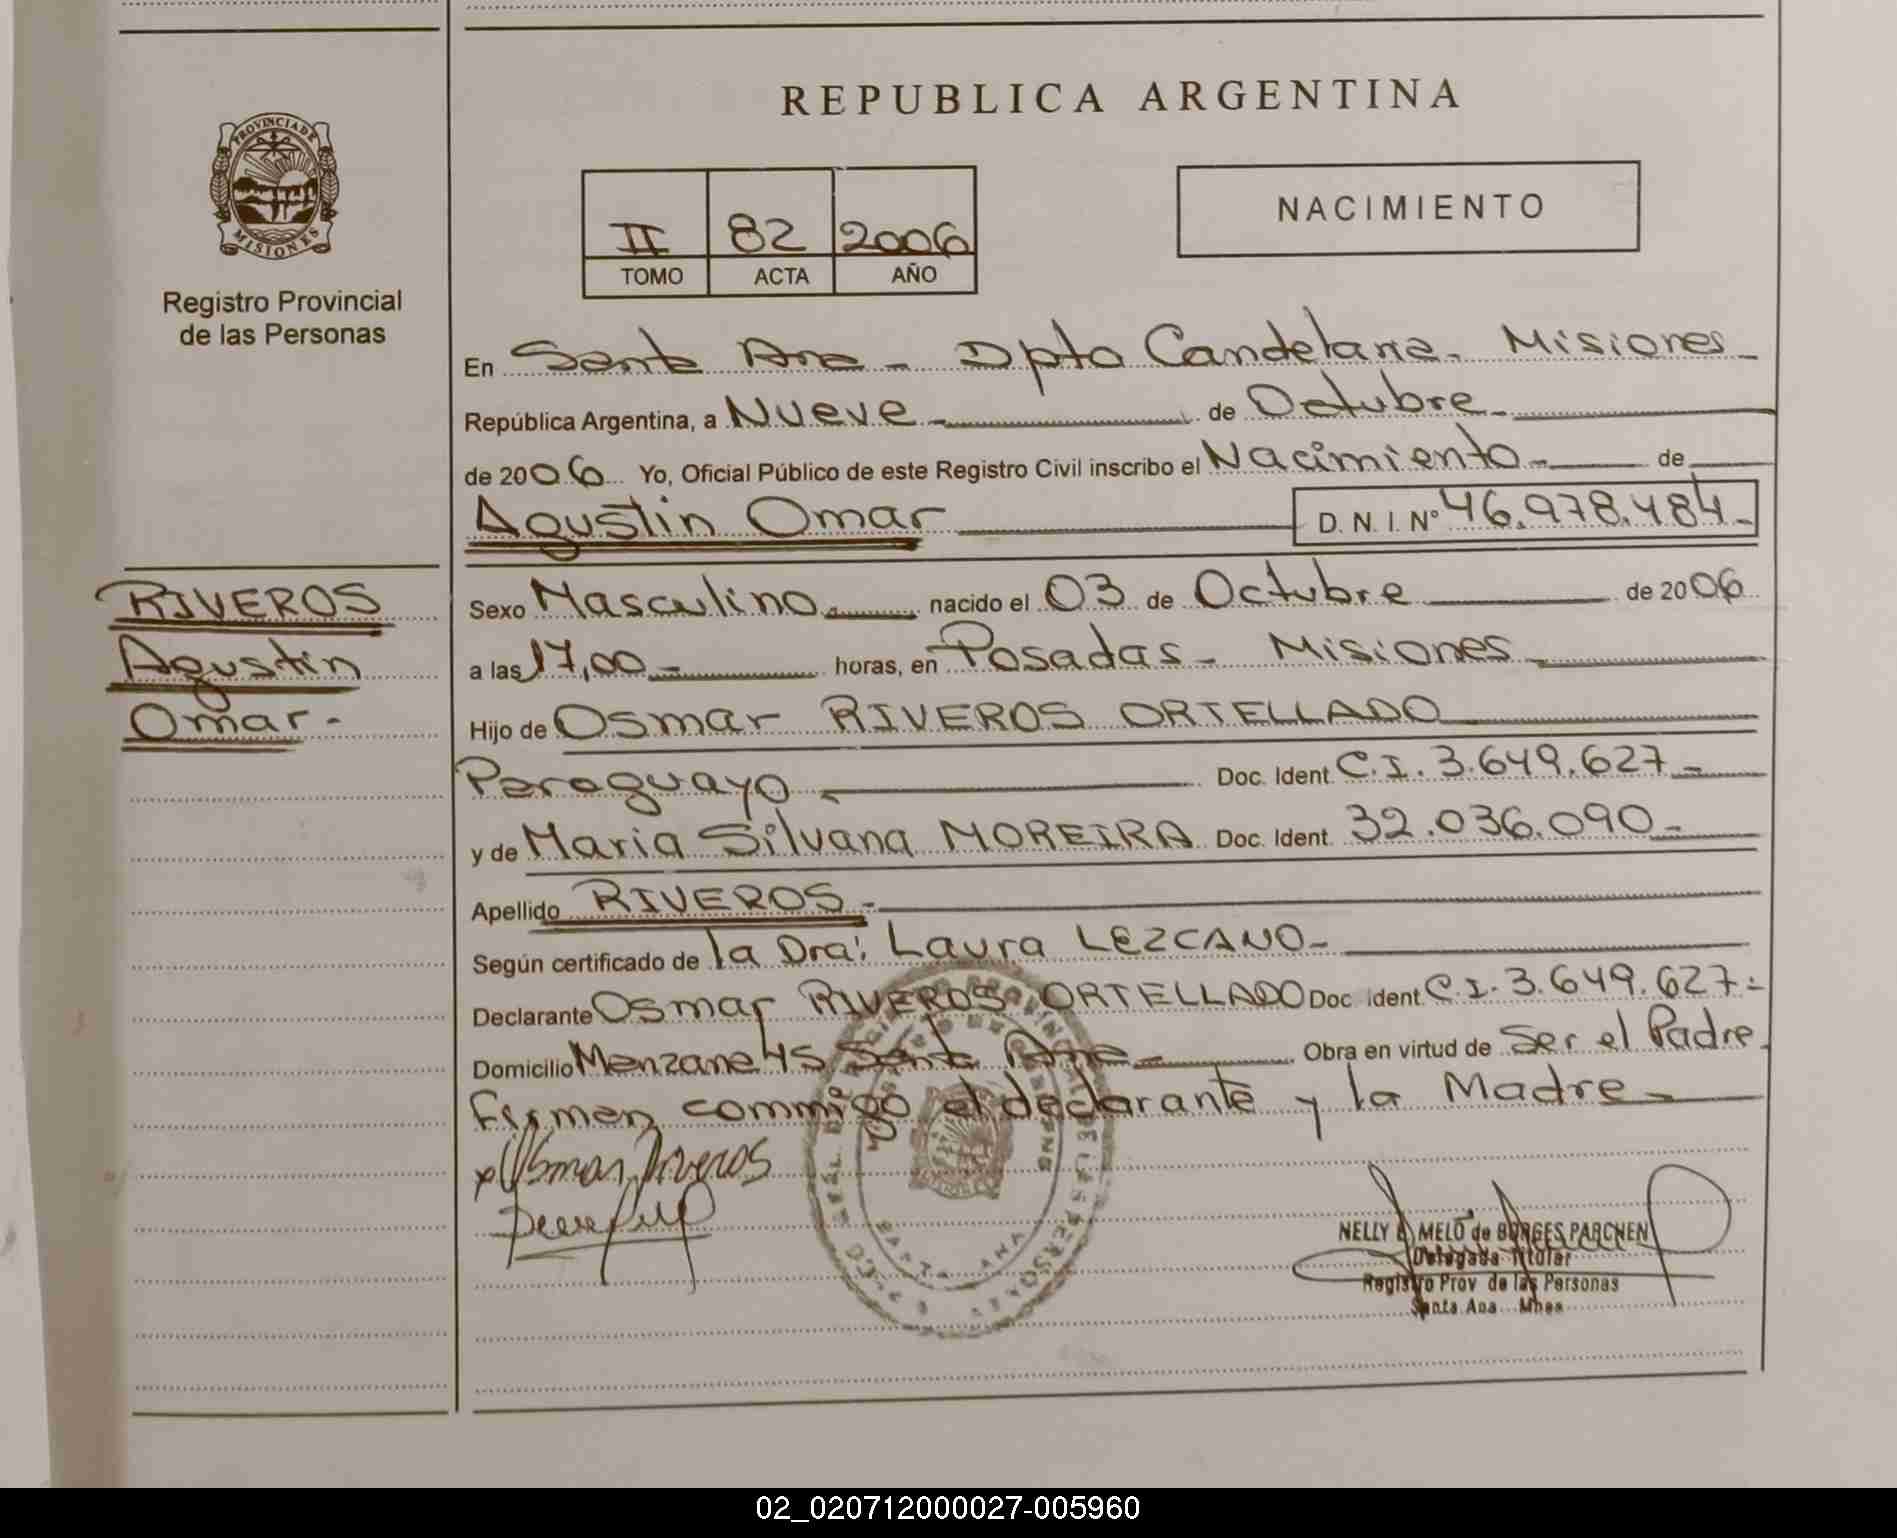 REPUBLICA ARGENTINA
PROVINCIA DE
MISIONES
Registro Provincial
de las Personas
II 82 2006
TOMO ACTA AÑO
NACIMIENTO
En Santa Ana - Dpto Candelaria - Misiones -
República Argentina, a Nueve - de Octubre -
de 2006 Yo, Oficial Público de este Registro Civil inscribo el Nacimiento - de
Agustin Omar D.N.I. Nº 46.978.484 -
RIVEROS
Agustin
Omar -
Sexo Masculino - nacido el 03 de Octubre de 2006
a las 17,00 - horas, en Posadas - Misiones -
Hijo de Osmar RIVEROS ORTELLADO
Paraguayo - Doc. Ident. C.I. 3.649.627 -
y de Maria Silvana MOREIRA Doc. Ident. 32.036.090 -
Apellido RIVEROS -
Según certificado de la Dra: Laura LEZCANO -
Declarante Osmar RIVEROS ORTELLADO Doc. Ident. C.I. 3.649.627 -
Domicilio Manzana 45 Santa Ana - Obra en virtud de Ser el Padre
Firman commigo el declarante y la Madre -
x Osmar Riveros
SANTA ANA
NELLY MELO de BORGES PARCHEN
Delegada Titular
Registro Prov de las Personas
Santa Ana Mnes
02_020712000027-005960